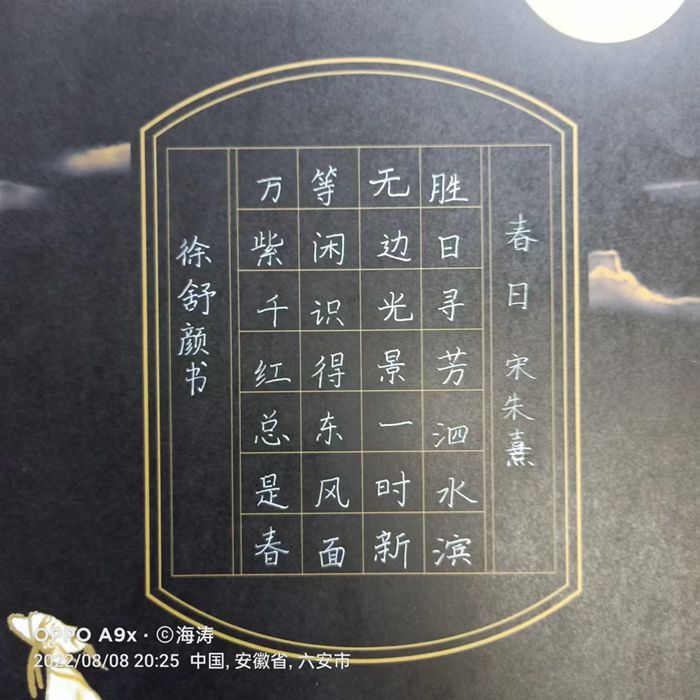 春日 宋朱熹
胜日寻芳泗水滨
无边光景一时新
等闲识得东风面
万紫千红总是春
徐舒颜书
OPPO A9x · ©海涛
2022/08/08 20:25 中国, 安徽省, 六安市